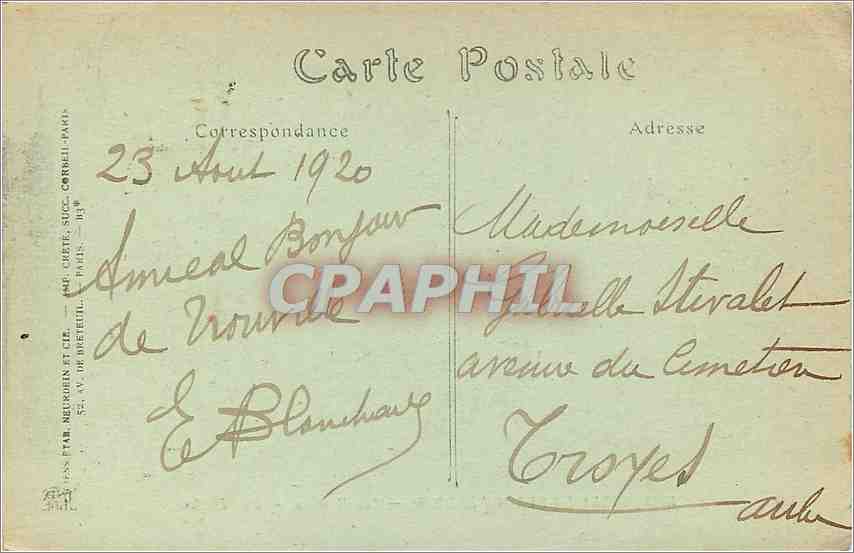 Carte Postale
Correspondance
23 Aout 1920
Amical Bonjour
de Trouville
E Blanchard
Adresse
Mademoiselle
Stevalet
avenue du Cimetière
Troyes
aube
CPAPHIL
ETAB. NEURDEIN ET CIE. — IMP. CRÉTÉ, SUCC. CORBEIL-PARIS
52, AV. DE BRETEUIL. PARIS. —